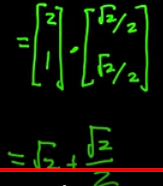 = [2 1] · [√2/2 √2/2]
= √2 + √2/2